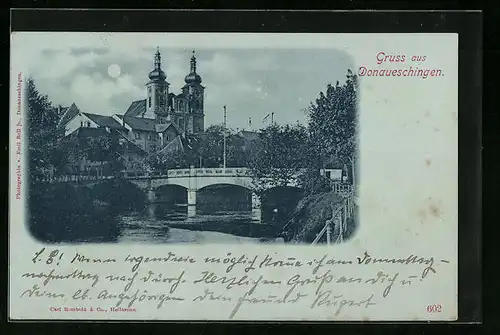 Gruss aus
Donaueschingen.
Photographie v. Emil Roll jr., Donaueschingen.
L. E! Wenn irgendwie möglich komme ich am Donnerstag-
nachmittag nach durch. Herzlichen Gruss an dich u
deine lb. Angehörigen dein Freund Rupert
Carl Rombold & Co., Heilbronn
602